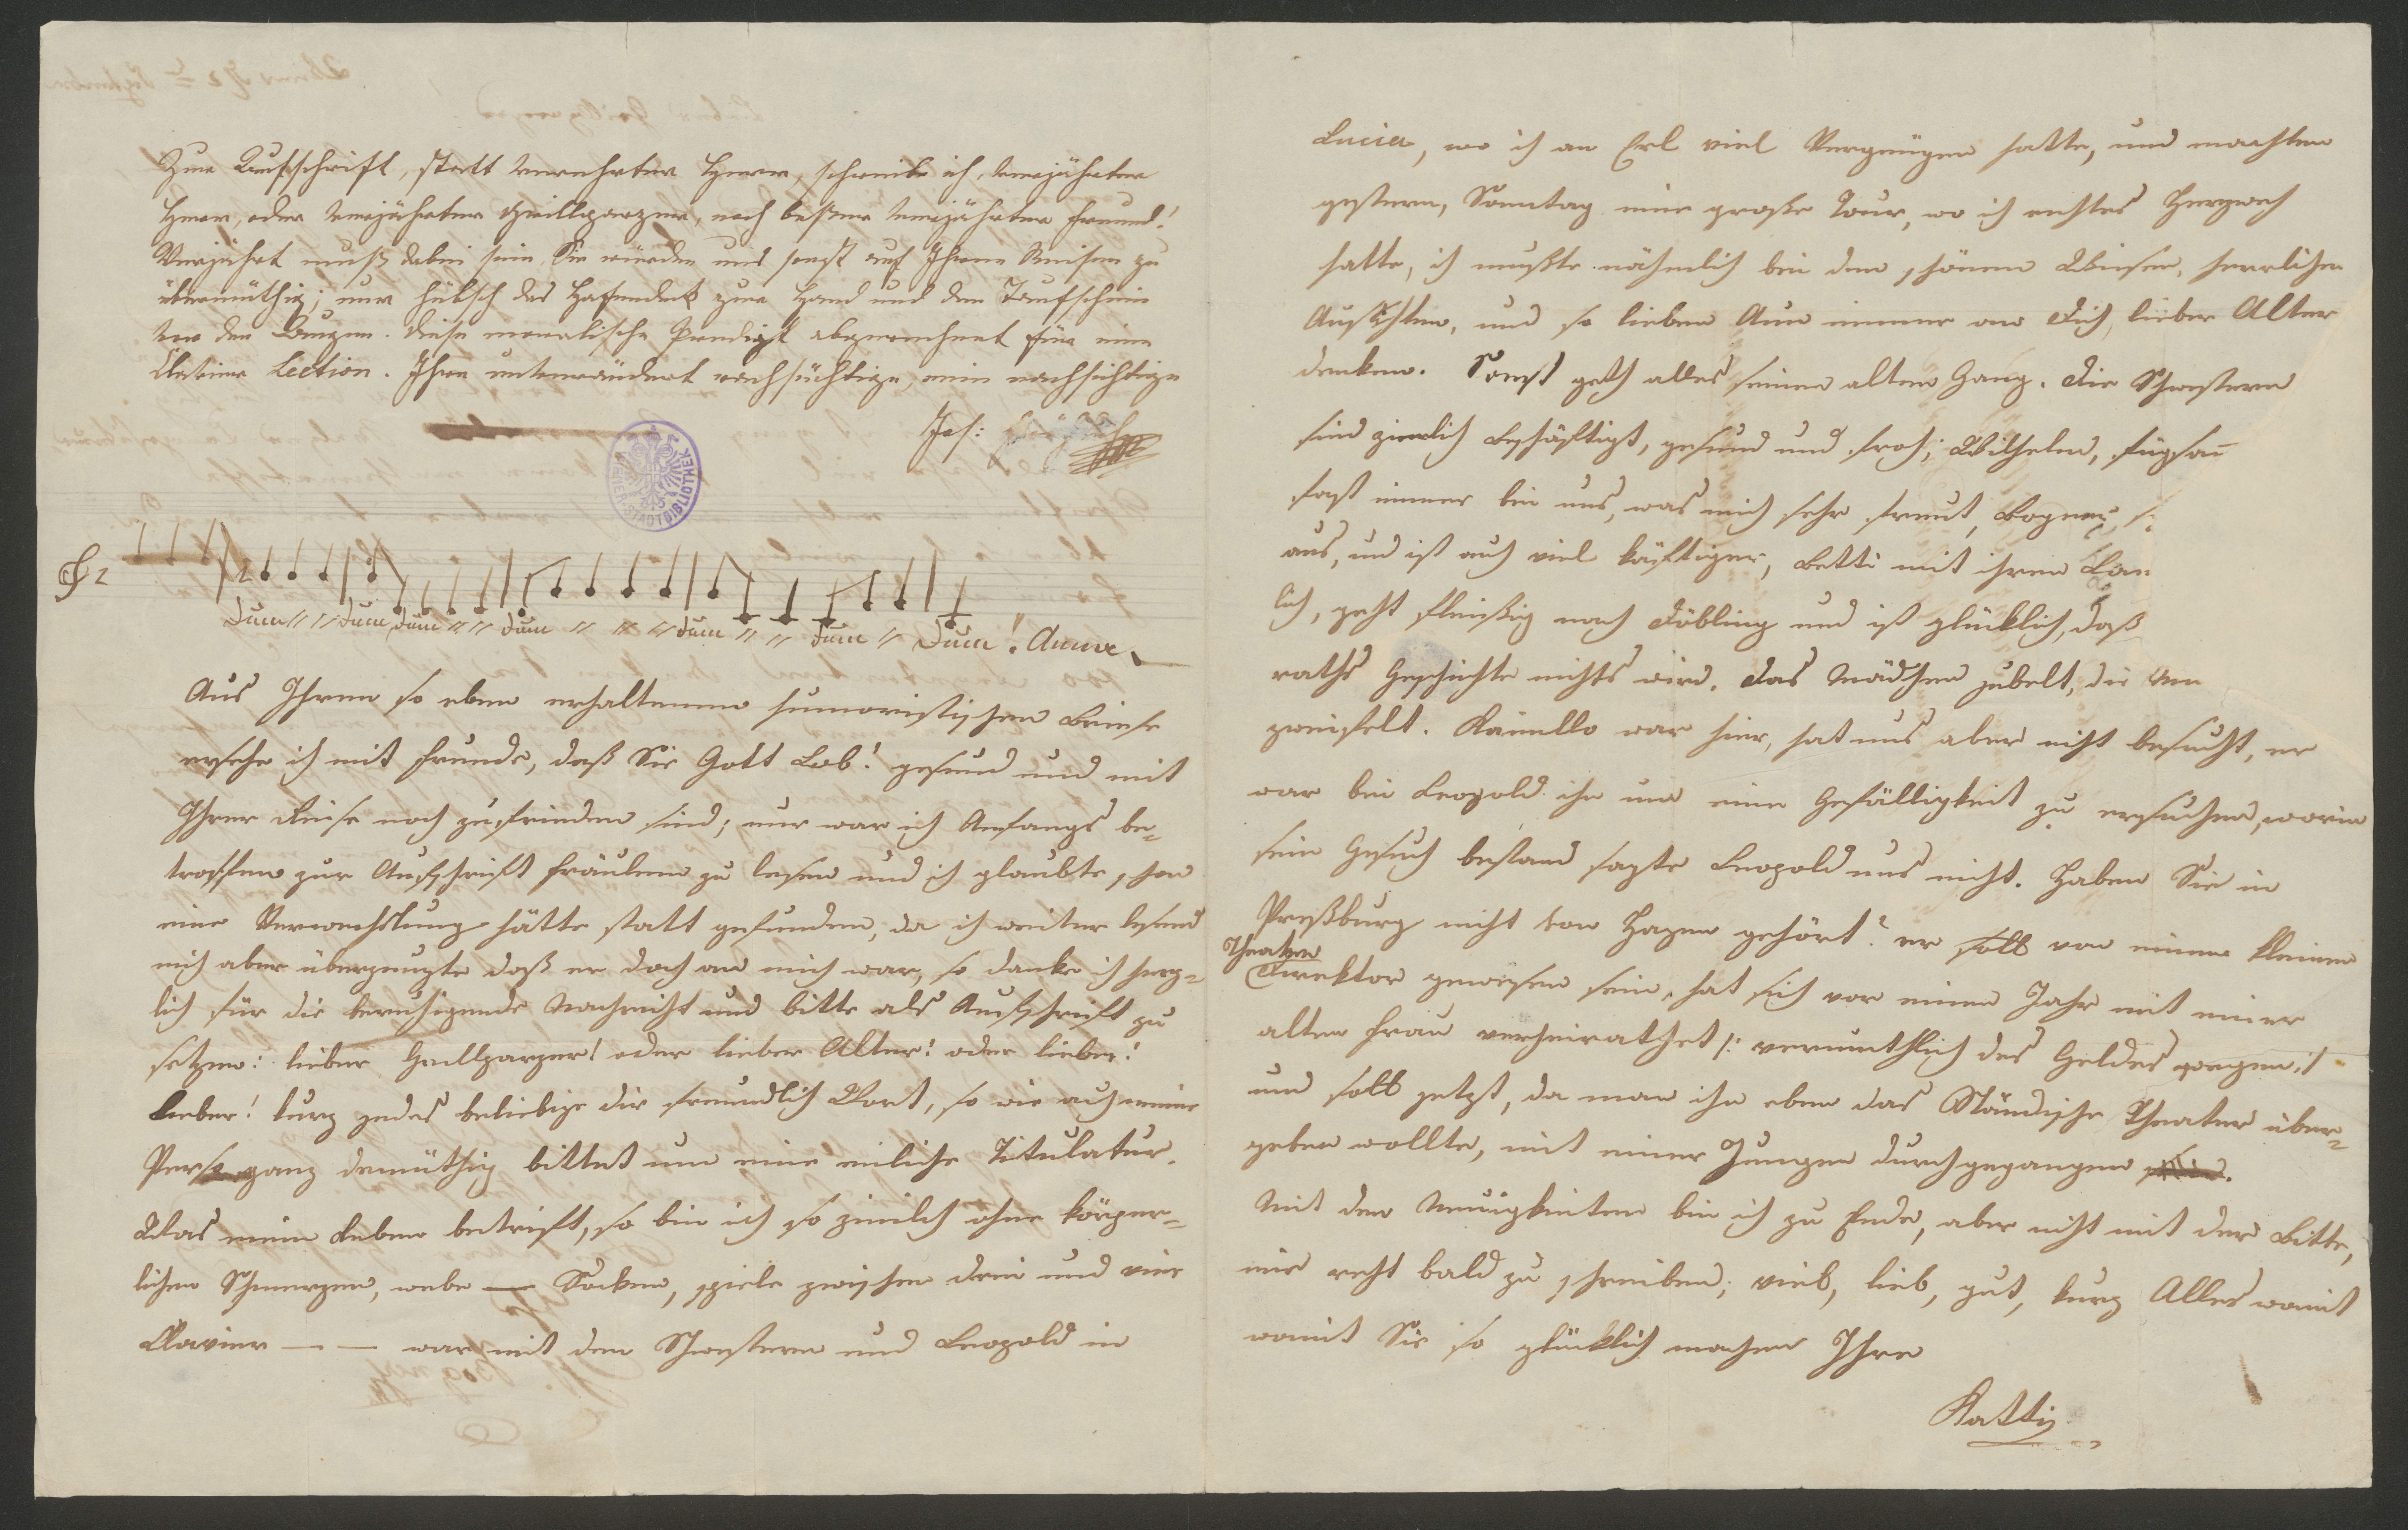 Zur Aufschrift, statt verehrter Herr, schreibe ich, verjährter
Herr, oder verjährter Grillparzer, noch besser verjährter Freund!
Verjährt muß dabei sein Sie würden uns sonst auf Ihren Reisen zu
übermüthig; nur hübsch das in der Hand und den Taufschein
vor den Augen. Diese moralische Predigt abgerechnet für eine
Clavier Lection. Ihre unverändert rachsüchtige nein nachsichtige
Jos:
WIENER STADTBIBLIOTHEK
Dum " " dum dum " " dum " " " dum " " dum " Dum! Anna
Aus Ihrem so eben erhaltenen humoristischen Briefe
ersehe ich mit Freude, daß Sie Gott Lob! gesund und mit
Ihrer Reise noch zufrieden sind; nur war ich Anfangs be-
troffen zur Aufschrift Fräulein zu lesen und ich glaubte, schon
eine Verwechslung hätte statt gefunden, da ich weiter lesend
mich aber überzeugte daß er doch an mich war, so danke ich herz-
lich für die beruhigende Nachricht und bitte als Aufschrift zu
setzen: lieber Grillparzer! oder lieber Alter! oder lieber!
Lieber! kurz jedes beliebige dir freundlich Wort, so wie auch meine
Person ganz demüthig bittet um eine Titulatur.
Was mein Leben betrifft, so bin ich so zimlich ohne körper-
lichen Schmerzen, webe — Socken, spiele zwischen drei und vier
Clavier — — war mit den Schwestern und Leopold in
Lucia, wo ich an Erl viel Vergnügen hatte, und machten
gestern, Sonntag eine große Tour, wo ich rechtes Herzweh
hatte, ich mußte nähmlich bei den schönen Wiesen, herrlichen
Aussichten, und so lieben Auen immer an Dich, lieber Alter
denken. Sonst geth alles seinen alten Gang. Die Schwestern
sind ziemlich beschäftigt, gesund und froh; Wilhelm, fügsam
fast immer bei uns, was mich sehr freut, Bogner s
aus, und ist auch viel käftiger, Betti mit ihren
lich, geht fleißig nach Döbling und ist glücklich, daß
raths Geschichte nichts wird. Das Mädchen jubelt, die
zweifelt. war hier, hat uns aber nicht besucht, er
war bei Leopold ihn um eine Gefälligkeit zu ersuchen, worin
sein Gesuch bestand sagte Leopold uns nicht. Haben Sie in
Preßburg nicht von Hagen gehört? er soll von einem kleinen
Theater
Direktor gewesen sein, hat sich vor einem Jahr mit einer
alten Frau verheirathet /: vermuthlich des Geldes wegen :/
und soll jetzt, da man ihn eben das Ständische Theater über-
geben wollte, mit einer Jungen durchgegangen sein.
Mit den Neuigkeiten bin ich zu Ende, aber nicht mit der Bitte,
mir recht bald zu schreiben; viel, lieb, gut, kurz Alles womit
womit Sie so glücklich machen Ihre
Katti